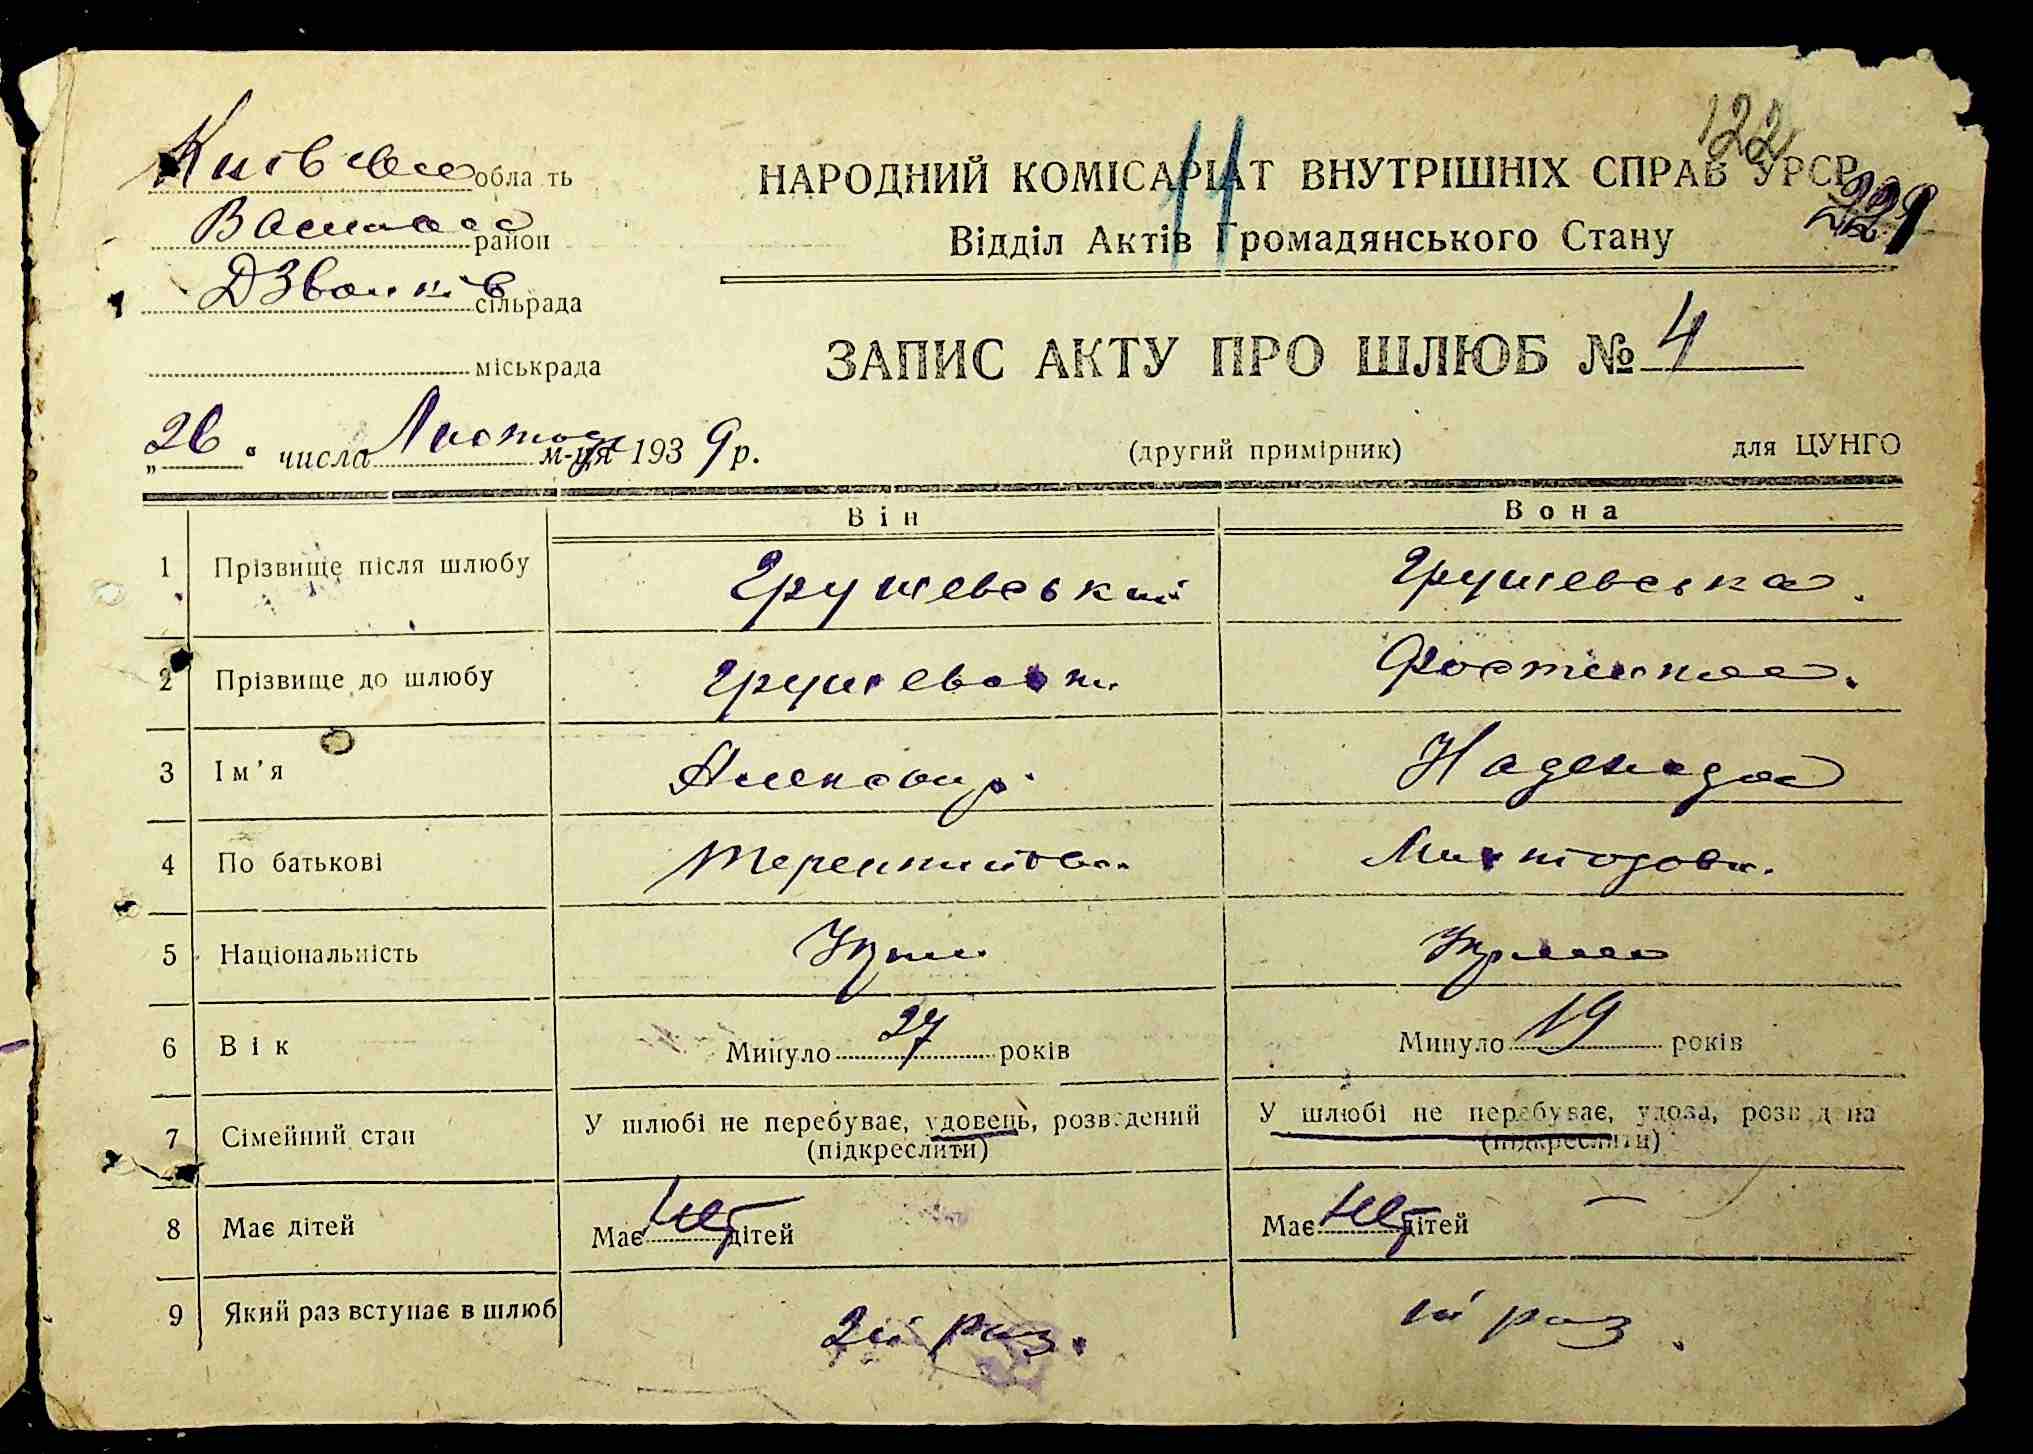 122
229
11
Київсько область
Васильк район
Дзвінків сільрада
міськрада
НАРОДНИЙ КОМІСАРІАТ ВНУТРІШНІХ СПРАВ УРСР
Відділ Актів Громадянського Стану
ЗАПИС АКТУ ПРО ШЛЮБ № 4
„26“ числа Листопад м-ця 1939 р.
(другий примірник)
для ЦУНГО
Він Вона
1 Прізвище після шлюбу Грушевський Грушевська.
2 Прізвище до шлюбу Грушевськ.
3 Ім’я Александр. Надежда
4 По батькові Терентийов.
5 Національність Укр
6 Вік Минуло 27 років Минуло 19 років
7 Сімейний стан У шлюбі не перебуває, удовець, розведений (підкреслити) У шлюбі не перебуває, удова, розведена (підкреслити)
8 Має дітей Має нет дітей Має нет дітей —
9 Який раз вступає в шлюб 2й раз. 1й раз.